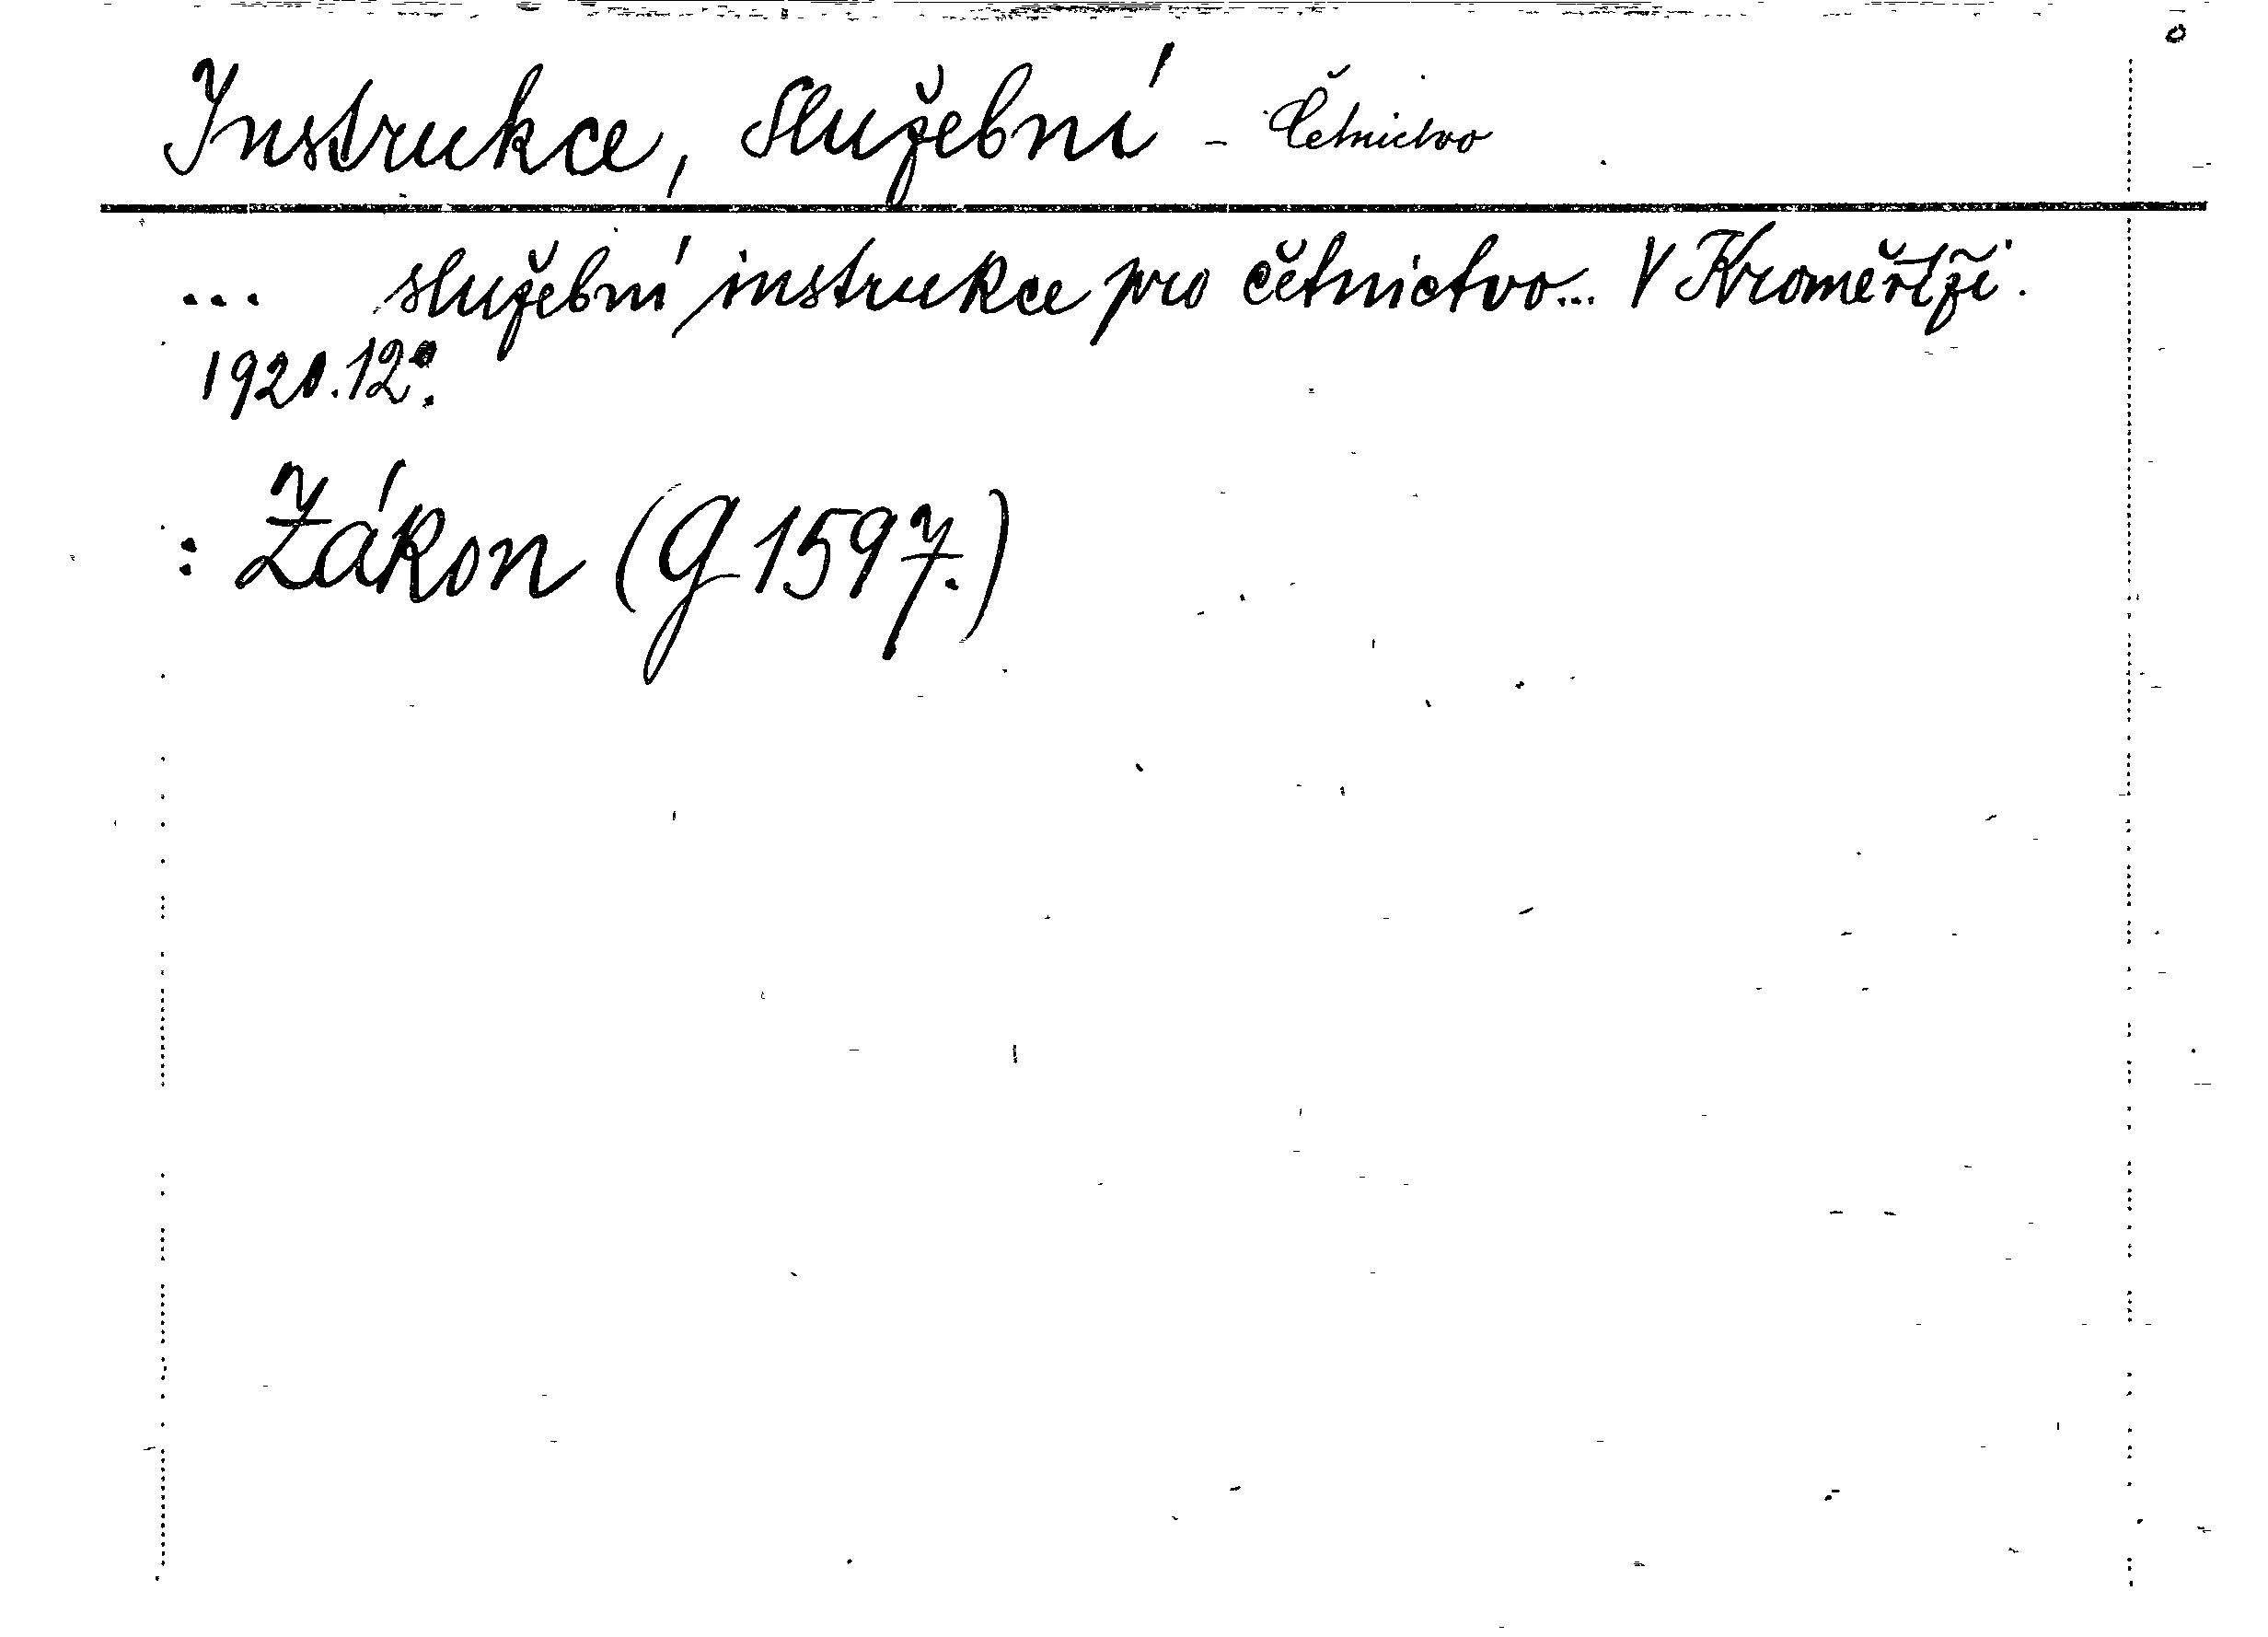 Instrukce, služební - Četnictvo
... služební instrukce pro četnictvo... V Kroměříži.
1920. 12°.
: Zákon (G 1597.)